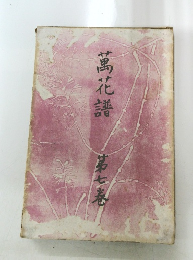 萬花譜
第七巻